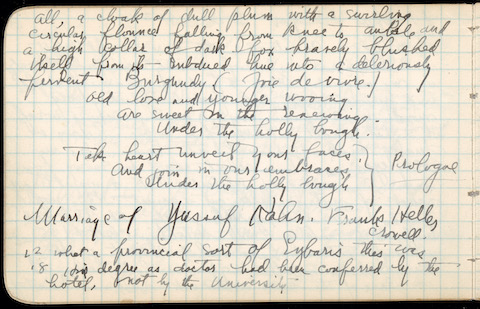 all, a cloak of dull plum with a swirling
circular flounce falling from knee to ankle and
a high collar of dark fox bravely blushed
itself from the subdued into a deliriously
fervent Burgundy (Joie de vivre.)
old love and younger wooing
are sweet in the renewing
Under the holly bough.
heart unveil your faces.
And join in our embraces
Under the holly bough
Prologue
Marriage of Yussuf Kahn. Franks Heller
Crowell
12 what a provincial sort of this was
18 his degree as doctor had been conferred by the
hotel, not by the University